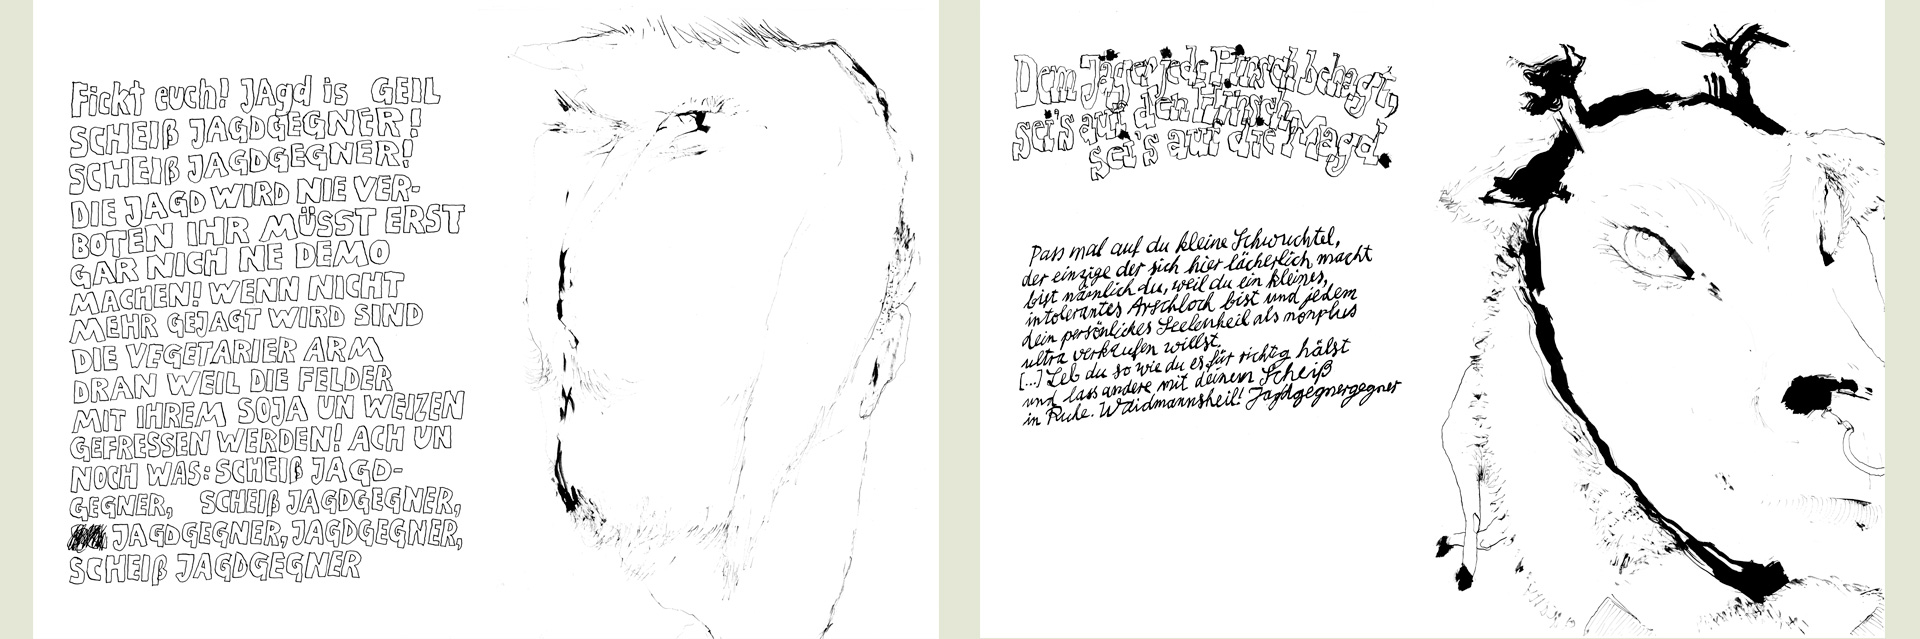 Fickt euch! JAgd is GEIL
SCHEIß JAGDGEGNER!
SCHEIß JAGDGEGNER!
DIE JAGD WIRD NIE VER-
BOTEN IHR MÜSST ERST
GAR NICH NE DEMO
MACHEN! WENN NICHT
MEHR GEJAGT WIRD SIND
DIE VEGETARIER ARM
DRAN WEIL DIE FELDER
MIT IHREM SOJA UN WEIZEN
GEFRESSEN WERDEN! ACH UN
NOCH WAS: SCHEIß JAGD-
GEGNER, SCHEIß JAGDGEGNER,
JAGDGEGNER, JAGDGEGNER,
SCHEIß JAGDGEGNER
Dem Jäger jede Pirsch behagt,
sei's auf den Hirsch,
sei's auf die Magd.
Pass mal auf du kleine Schwuchtel,
der einzige der sich hier lächerlich macht
bist nämlich du, weil du ein kleines,
intolerantes Arschloch bist und jedem
dein persönliches Seelenheil als nonplus
ultra verkaufen willst.
[...] Leb du so wie du es für richtig hälst
und lass andere mit deinem Scheiß
in Ruhe. Waidmannsheil! Jagdgegnergegner